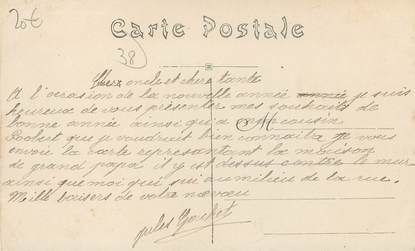 20€
Carte Postale
38
Cher oncle et chère tante
A l'occasion de la nouvelle année année je suis
heureux de vous présenter mes souhaits de
bonne année ainsi qu'a mon cousin
que je voudrait bien connaitre je vous
envoie la carte representant la maison
de grand papa il y est dessus contre le mur
ainsi que moi qui sui au milieu de la rue.
Mille baisers de votre neveu
Jules